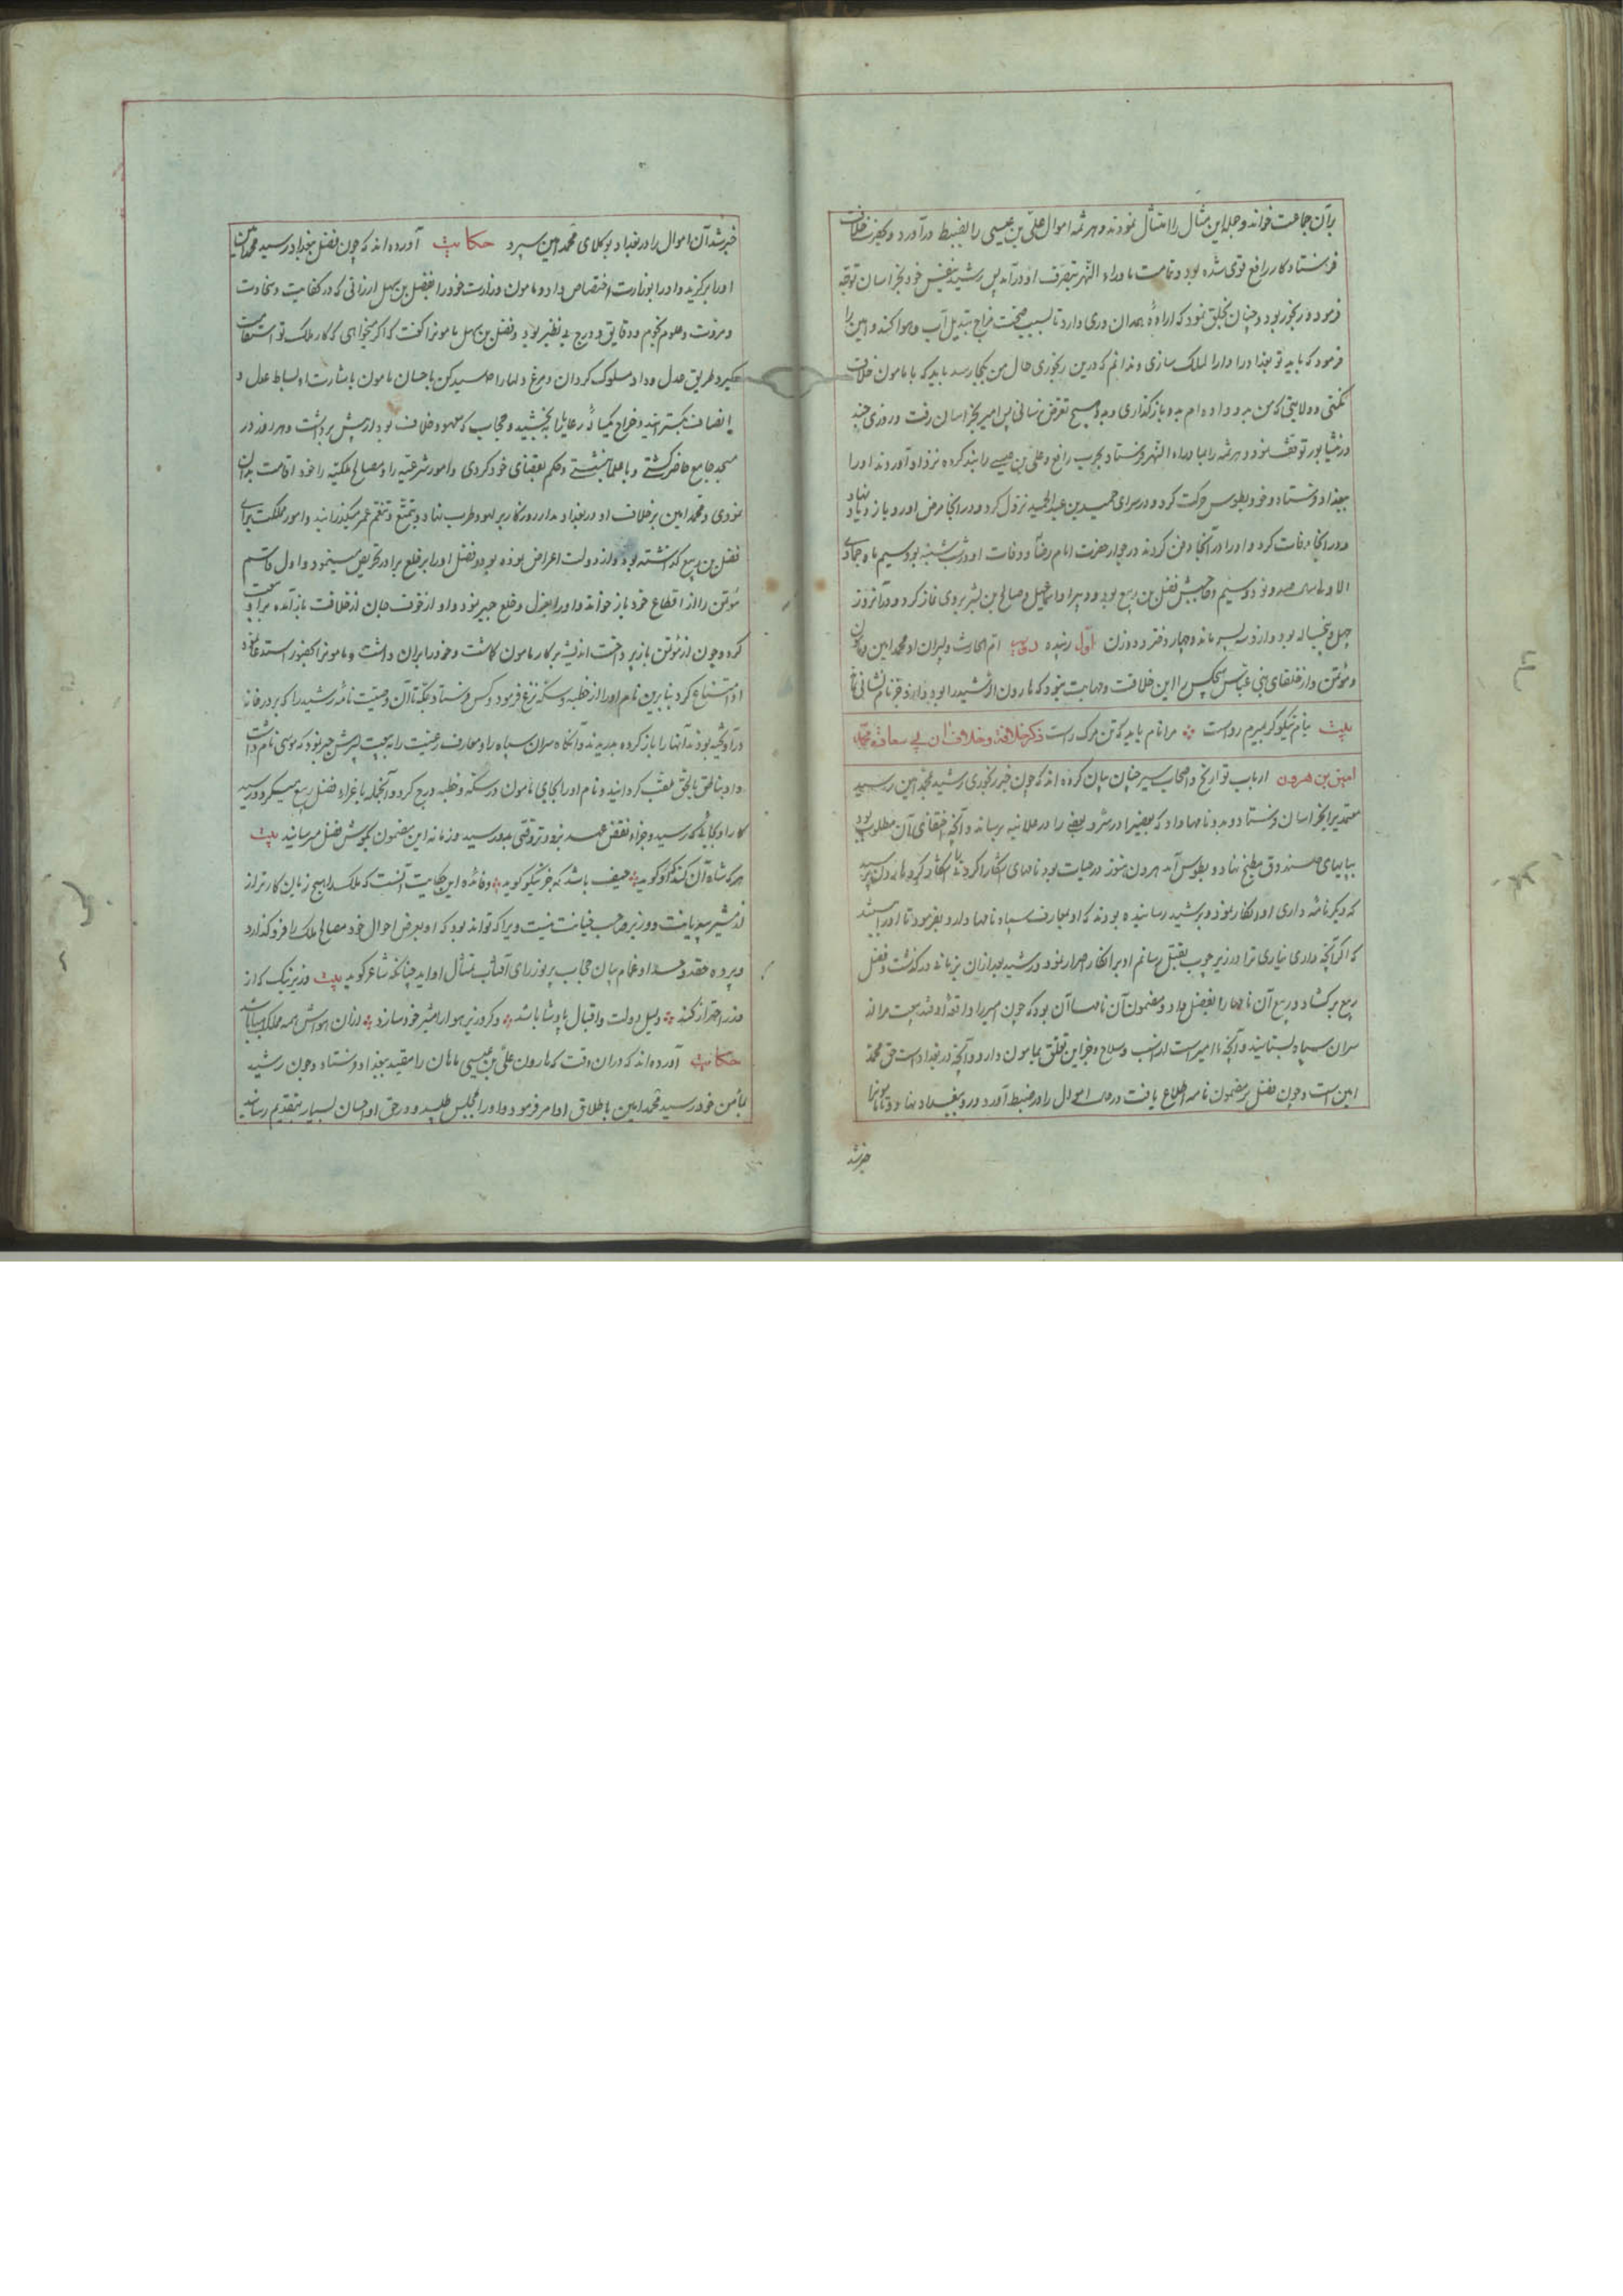 برآن جماعت خواند و جمله این مثال را امتثال نمودند و هرثمه اموال علی بن عیسی را بضبط درآورد و بحضرت خلافت
فرستاد کار رافع قوی شده بود و تمامت ماوراء النهر بتصرف او درآمد پس رشید بنفس خود بخراسان توجه
فرمود و رنجور بود و چنان بخلق نمود که ارادهٔ همدان و ری دارد تا بسبب صحت مزاج تبدیل آب و هوا کند و امین را
فرمود که باید تو بغداد را دارالملک سازی و ندانم که درین رنجوری حال من بکجا رسد باید که با مامون خلاف
نکنی و ولایتی که من بدو داده‌ام بدو بازگذاری و بدو هیچ تعرض نرسانی پس امیر بخراسان رفت و روزی چند
در نیشابور توقف نمود و هرثمه را بماوراء النهر فرستاد بحرب رافع و علی بن عیسی را بند کرده نزد او آوردند او را
ببغداد فرستاد و خود بطوس حرکت کرد و در سرای حمید بن عبد الحمید نزول کرد و در آنجا مرض او رو باز دیاد نهاد
و در آنجا وفات کرد و او را در آنجا دفن کردند در جوار حضرت امام رضا و وفات او در شب شنبه بود سیم ماه جمادی
الاولی سال صد و نود و سیم و حاجبش فضل بن ربیع بود و دبیر او اسماعیل و صالح بن بشر بروی نماز کرد و در آنروز
چهل و پنجساله بود و ازو پسر ماند و چهار دختر و دو زن اول زبیده دویم ام الحارث و پسران او محمد امین و مامون
و موتمن و از خلفای بنی عباس هیچکس را این خلافت و مهابت نبود که هارون الرشید را بود و ازو جز نام نشانی نماند
بیت بنام نیکو گر بمیرم رواست مرا نام باید که تن مرک راست ذکر خلافة و خلافت آن بی سعادة محمد
امین بن هرون ارباب تواریخ و اصحاب سیر چنان بیان کرده‌اند که چون خبر رنجوری رشید بمحمد امین رسید
معتمدیرا بخراسان فرستاد و بدو نامها داد که بعضیرا در سر و بعضی را در علانیه برساند و آنچه اختفای آن مطلوب بود
بپایهای صندوق مطبخ نهاد و بطوس آمد هرون هنوز در حیات بود نامهای آشکارا کرد
که دیگر نامه داری او انکار نمود و برشید رسانیده بودند که او بمعارف سپاه نامها دارد بفرمود تا او را
که اگر آنچه داری نیاری ترا در زیر چوب بقتل رسانم او بر انکار اصرار نمود و رشید بعد از آن بزمانی درگذشت و فضل
ربیع برگشاد و ربیع آن نامها را بفضل داد و مضمون آن نامها آن بود که چون امیر را واقعه او فتد بیعت مرا از
سران سپاه بستانید و آنچه با امیر است از اسب و سلاح و خزاین تعلق بمامون دارد و آنچه در بغداد است حق محمد
امین است و چون فضل بر مضمون نامه اطلاع یافت در حال اموال را در ضبط آورد و رو ببغداد نهاد و تا مامونرا
خبر شد
خبر شد آن اموال را در بغداد بوکلای محمد امین سپرد حکایت آورده‌اند که چون فضل ببغداد رسید محمد امین
او را برگزید و او را بوزارت اختصاص داد و مامون وزارت خود را بفضل بن سهل ارزانی که در کفایت و سخاوت
و مروت و علوم نجوم و دقایق و درج بی نظیر بود و فضل بن سهل مامونرا گفت که اگر میخواهی که کار ملک تو استقامت
گیرد طریق عدل و داد مسلوک گردان و مرغ دلها را صید کن باحسان مامون باشارت او بساط عدل و
انصاف بگسترانید و خراج یکساله رعایا را بخشید و حجاب که معهود خلافت بود از پیش برداشت و هر روز در
مسجد جامع حاضر گشتی و با علما بنشستی و حکم بقضای خود کردی و امور شرعیه را و مصالح ملکیه را خود اقامت
نمودی و محمد امین بر خلاف او در بغداد مدار روزگار بر لهو و طرب نهاد و بتمتع و تنعم عمر میگذرانید و امور مملکت برای
فضل بن ربیع گذاشته بود و از دولت اعراض نموده بود و فضل او را بر خلع برادر تحریص مینمود و اول قاسم
موتمن را از اقطاع خود باز خواند و او را بعزل و خلع خبر نمود و او از خوف جان از خلافت باز آمده بر او بیعت
کرد و چون از موتمن باز پرداخت اندیشه بر کار مامون گماشت و خود را بر آن داشت و مامونرا بحضور استدعا نمود
او امتناع کرد بنابرین نام او را از خطبه و سکه نزع فرمود و کس فرستاد بمکه تا آن وصیت نامه رشید را که بر در خانه
درآویخته بودند آنها را باز کرده بدریدند و آنگاه سران سپاه را و معارف رعیت را به بیعت پسرش خبر نمود که موسی نام داشت
و او بناطق بالحق ملقب گردانید و نام او را بجای مامون در سکه و خطبه درج کرد و آنجمله باغراء فضل ربیع میکرد و رسید
کار او بجائی که رسید و جزاء نقض عهد بزودترقتی بدو رسید و زمانه این مضمون بگوش فضل میرسانید بیت
هر که شاه آن کند که او گوید حیف باشد که جز نیکو گوید و فائده این حکایت آنست که ملک را هیچ زیان کارتر از
مشیر بیدیانت و وزیر صاحب خیانت نیست زیرا که تواند بود که او بغرض احوال خود مصالح ملک را فرو گذارد
و پرده حقد و حسد او غمام سان حجاب پر نور رای آفتاب تمثال او آید چنانکه شاعر گوید بیت وزیر نیک که از
وزر احتراز کند دلیل دولت و اقبال پادشا باشد وگر وزیر هوا را مشیر خود سازد از آن هواش همه ملک
حکایت آورده‌اند که در آن وقت که هارون علی بن عیسی ماهان را مقید ببغداد فرستاد و چون رشید
بمأمن خود رسید محمد امین باطلاق او امر فرمود و او را بمجلس طلبید و در حق او احسان بسیار بتقدیم رسانید